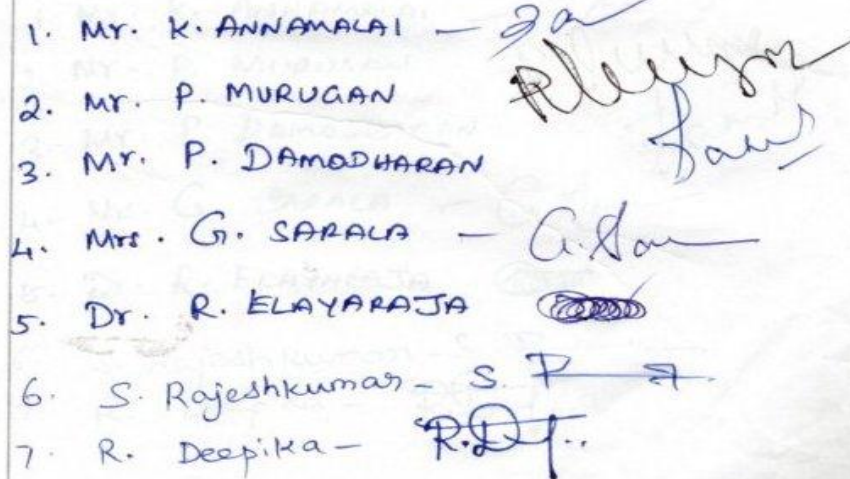 1. Mr. K. ANNAMALAI -
2. Mr. P. MURUGAN
3. Mr. P. DAMODHARAN
4. Mrs. G. SARALA -
5. Dr. R. ELAYARAJA
6. S. Rajeshkumar -
7. R. Deepika -